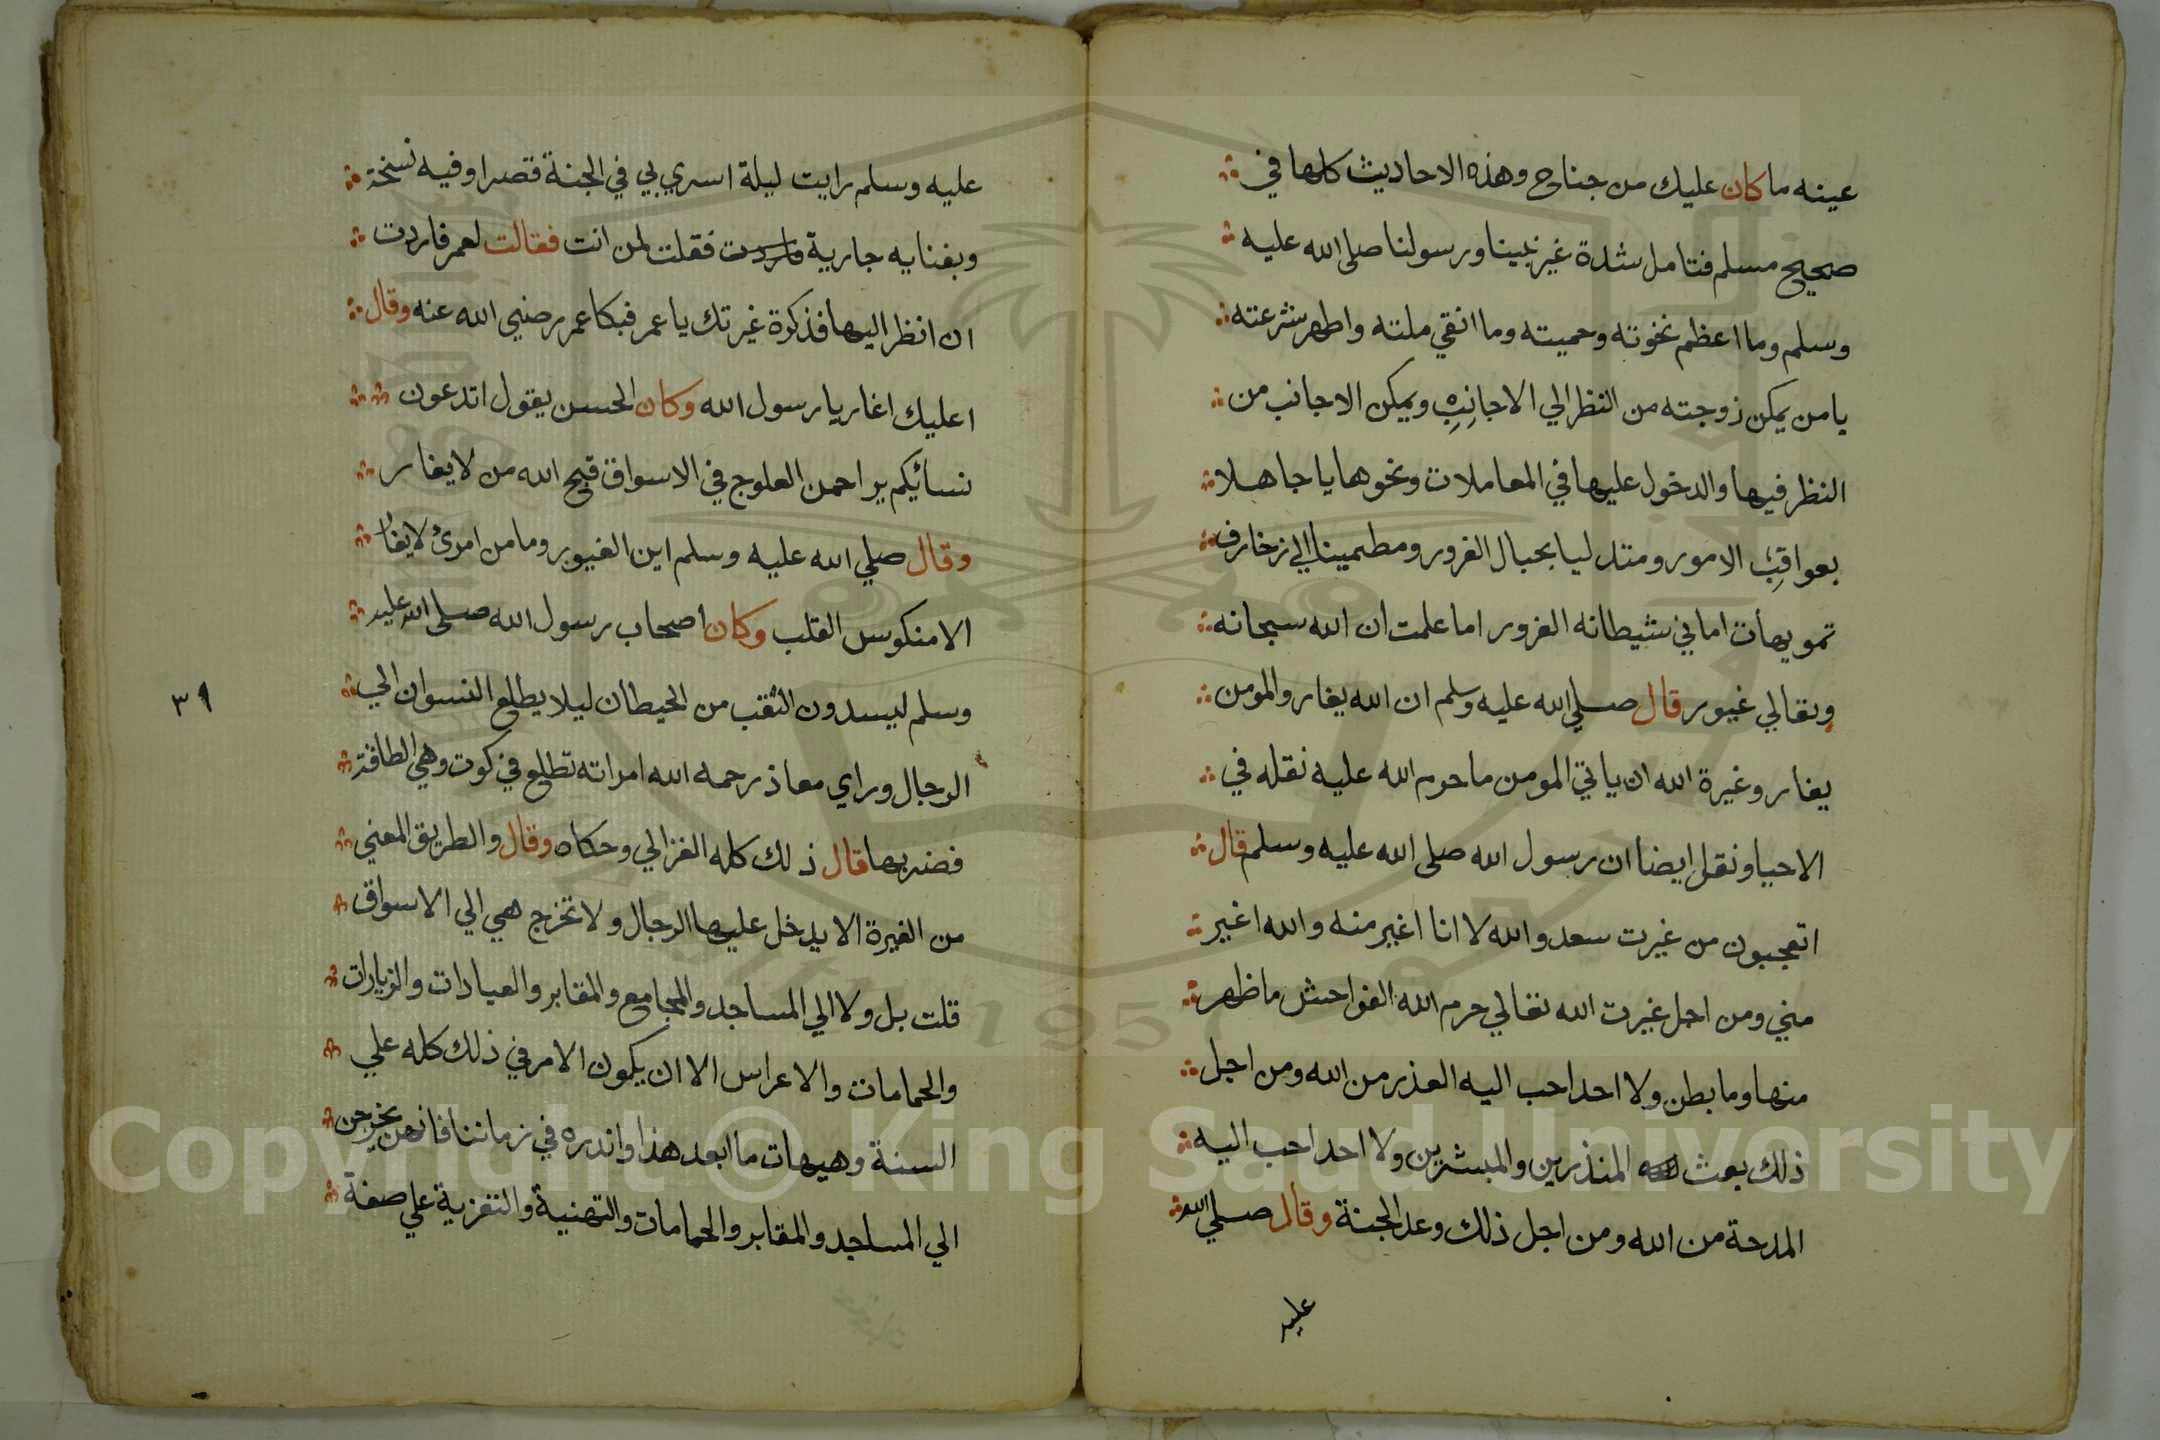 عينه ما كان عليك من جناح وهذه الاحاديث كلها في
صحيح مسلم فتامل شدة غير نبينا ورسولنا صلى الله عليه
وسلم وما اعظم نخوته وحميته وما انقي ملته واطهر شرعته
يا من يمكن زوجته من النظر الي الاجانب ويمكن الاجانب من
النظر فيها والدخول عليها في المعاملات ونحوها يا جاهلا
بعواقب الامور ومتدليا بحبال الغرور ومطمينا الي زخارف
تمويهات اماني شيطانه الغرور اما علمت ان الله سبحانه
وتعالي غيور قال صلي الله عليه وسلم ان الله يغار والمومن
يغار وغيرة الله ان ياتي المومن ما حرم الله عليه نقله في
الاحيا ونقل ايضا ان رسول الله صلى الله عليه وسلم قال
اتعجبون من غيرت سعد والله لا انا اغير منه والله اغير
مني ومن اجل غيرت الله تعالي حرم الله الفواحش ما ظهر
منها وما بطن ولا احد احب اليه العذر من الله ومن اجل
ذلك بعث المنذرين والمبشرين ولا احد احب اليه
المدحة من الله ومن اجل ذلك وعد الجنة وقال صلي الله
عليه
عليه وسلم رايت ليلة اسري بي في الجنة قصرا وفيه نسخة
وبفنايه جارية فقلت لمن انت فقالت لعمر فاردت
ان انظر اليها فذكرة غيرتك يا عمر فبكا عمر رضي الله عنه وقال
اعليك اغار يا رسول الله وكان الحسن يقول اتدعون
نسائيكم يراحمن العلوج في الاسواق قبح الله من لا يغار
وقال صلي الله عليه وسلم اين الغيور وما من امرئ لا يغار
الا منكوس القلب وكان اصحاب رسول الله صلى الله عليه
وسلم ليسدون الثقب من الحيطان ليلا يطلع النسوان الي
الرجال وراي معاذ رحمه الله امراته تطلع في كوت وهي الطاقة
فضربها قال ذلك كله الغزالي وحكاه وقال والطريق المغني
من الغيرة الا يدخل عليها الرجال ولا تخرج هي الي الاسواق
قلت بل ولا الي المساجد والمجامع والمقابر والعيادات والزيارات
والحمامات والاعراس الا ان يكون الامر في ذلك كله علي
السنة وهيهات ما ابعد هذا واندره في زماننا فانهن يخرجن
الي المساجد والمقابر والحمامات والتهنية والتعزية علي صفة
٣٩
Copyright © King Saud University
1957